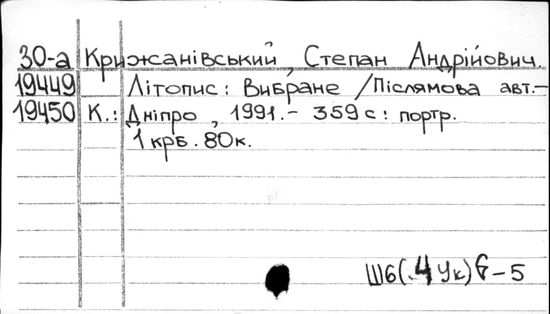 30-а Крижанівський, Степан Андрійович.
19449 Літопис: Вибране /Післямова авт.-
19450 К.: Дніпро, 1991.- 359с: портр.
1 крб. 80к.
Ш6(.4Ук)6-5